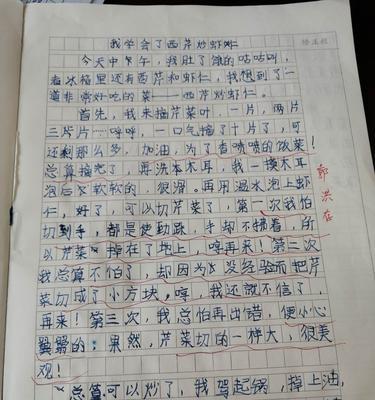 我学会了西芹炒虾仁
今天中午,我肚子饿的咕咕叫,
看冰箱里还有西芹和虾仁,我想到了一
道非常好吃的菜——西芹炒虾仁。
首先,我来摘芹菜叶,一片,两片
三片片……哼哼,一口气摘了十片了,可
还剩那么多,加油,为了香喷喷的饭菜!
总算摘完了,再洗木耳,我一摸木耳
泡后又软软的,很滑。再用温水泡上虾
仁,好了,可以切芹菜了,第一次我怕
切到手,都是使劲跺,手却不扶着,所
以芹菜掉在了地上,哼再来!第二次
我总算不怕了,却因为没经验而把芹
菜切成了小方块,哼,我还就不信了,
再来!第三次,我总怕再出错,便小心
翼翼的,果然,芹菜切的一样大,很美
观!
总算可以炒了,我驾起锅,掉上油,